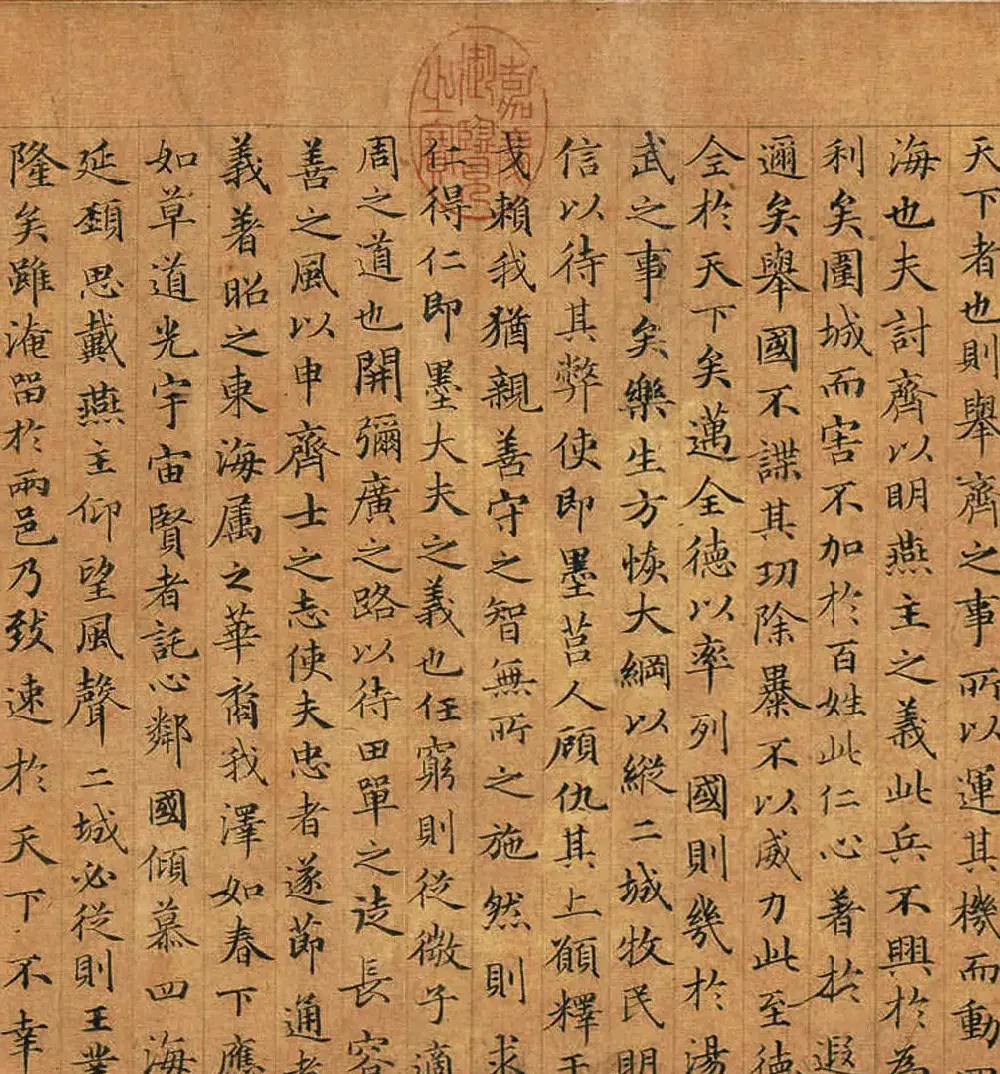 嘉慶御覽之寶
天下者也則舉齊之事所以運其機而動四
海也夫討齊以眀燕主之義此兵不興於為
利矣圍城而害不加於百姓此仁心著於遐
邇矣舉國不謀其功除暴不以威力此至德
全於天下矣邁全德以率列國則幾於湯
武之事矣樂生方恢大綱以縱二城牧民眀
信以待其弊使即墨莒人顧仇其上願釋干
戈賴我猶親善守之智無所之施然則求
仁得仁即墨大夫之義也任窮則從微子適
周之道也開彌廣之路以待田單之徒長容
善之風以申齊士之志使夫忠者遂節通者
義著昭之東海屬之華裔我澤如春下應
如草道光宇宙賢者託心鄰國傾慕四海
延頸思戴燕主仰望風聲二城必從則王業
隆矣雖淹留於兩邑乃致速於天下不幸